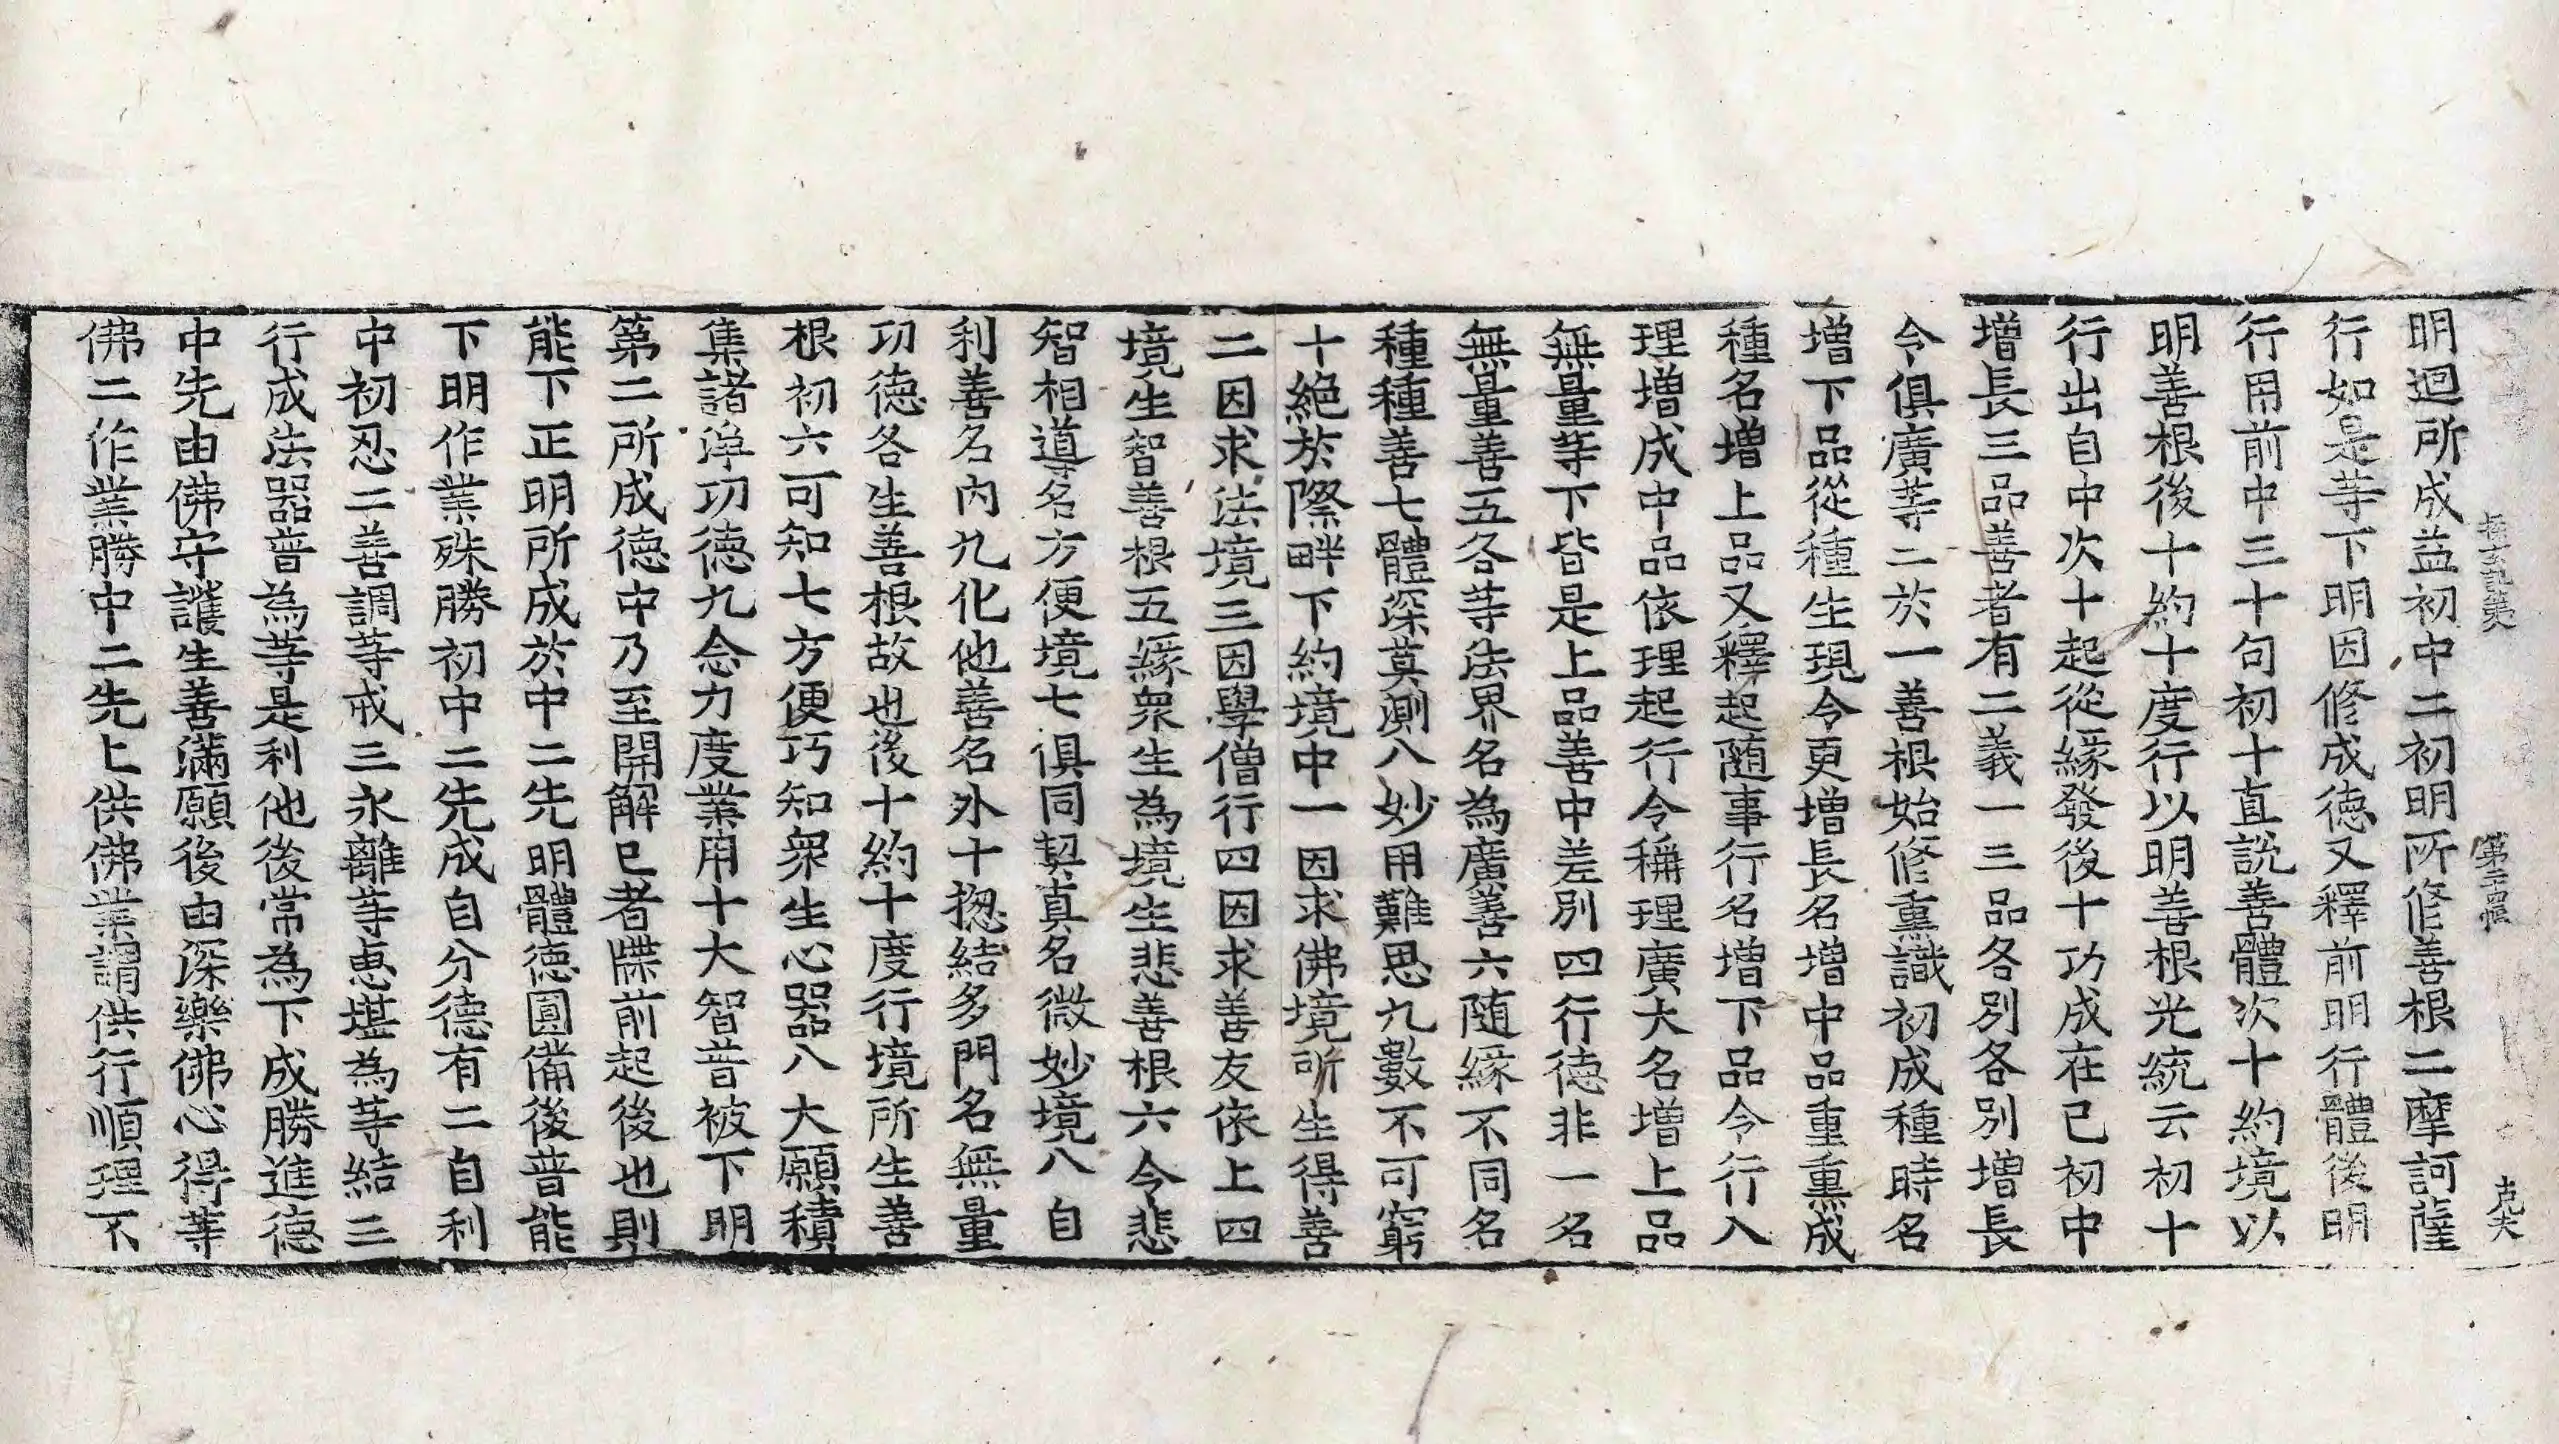 明迴所成益初中二初明所修善根二摩訶薩
行如是等下明因修成德又釋前明行體後明
行用前中三十句初十直説善體次十約境以
明善根後十約十度行以明善根光統云初十
行出自中次十起從緣發後十功成在已初中
增長三品善者有二義一三品各別各別增長
令俱廣等二於一善根始修熏識初成種時名
增下品從種生現令更增長名增中品重熏成
種名增上品又釋起随事行名增下品令行入
理增成中品依理起行令稱理廣大名增上品
無量等下皆是上品善中差別四行德非一名
無量善五各等法界名為廣善六随緣不同名
種種善七體深莫測八妙用難思九數不可窮
十絶於際畔下約境中一因求佛境所生得善
二因求法境三因學僧行四因求善友依上四
境生智善根五緣衆生為境生悲善根六令悲
智相導名方便境七俱同契真名微妙境八自
利善名内九化他善名外十揔結多門名無量
功德各生善根故也後十約十度行境所生善
根初六可知七方便巧知衆生心器八大願積
集諸淨功德九念力度業用十大智普被下明
第二所成德中乃至開解已者牒前起後也則
能下正明所成於中二先明體德圓備後普能
下明作業殊勝初中二先成自分德有二自利
中初忍二善調等戒三永離等恵堪為等結三
行成法器普為等是利他後常為下成勝進德
中先由佛守護生善滿願後由深樂佛心得等
佛二作業勝中二先上供佛業謂供行順理不